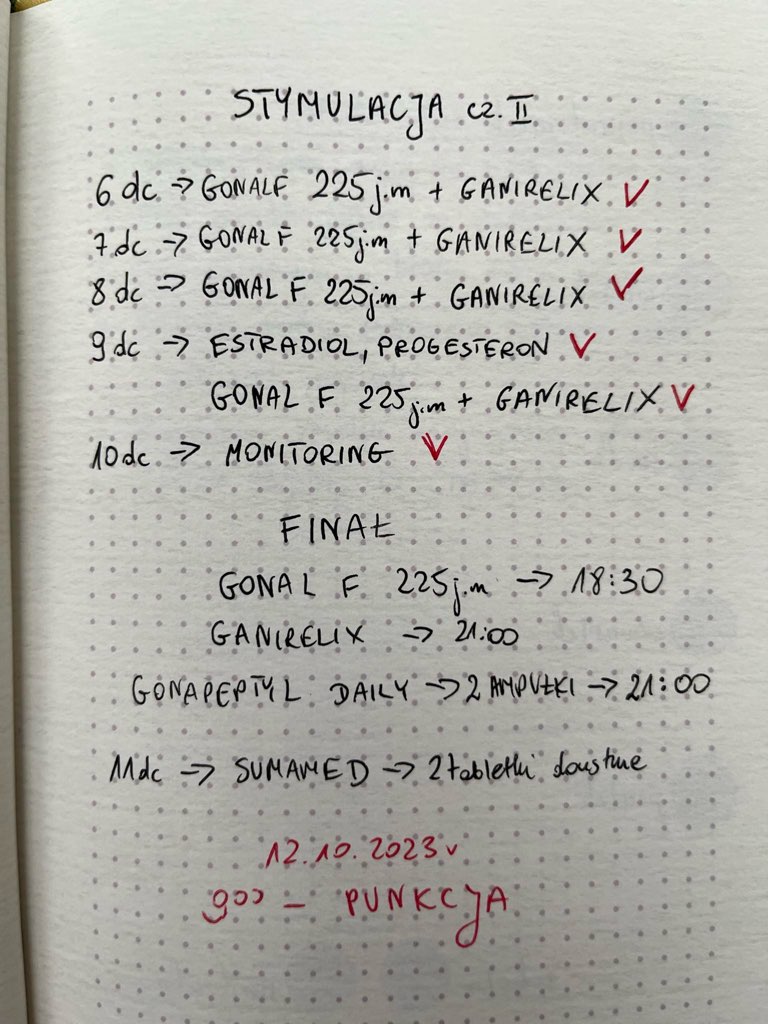 STYMULACJA cz. II
6 dc → GONALF 225 j.m + GANIRELIX V
7 dc → GONAL F 225 j.m + GANIRELIX V
8 dc → GONAL F 225 j.m + GANIRELIX V
9 dc → ESTRADIOL, PROGESTERON V
GONAL F 225 j.m + GANIRELIX V
10 dc → MONITORING V
FINAŁ
GONAL F 225 j.m → 18:30
GANIRELIX → 21:00
GONAPEPTYL DAILY → 2 AMPUŁKI → 21:00
11 dc → SUMAMED → 2 tabletki doustne
12.10.2023 r
9⁰⁰ – PUNKCJA